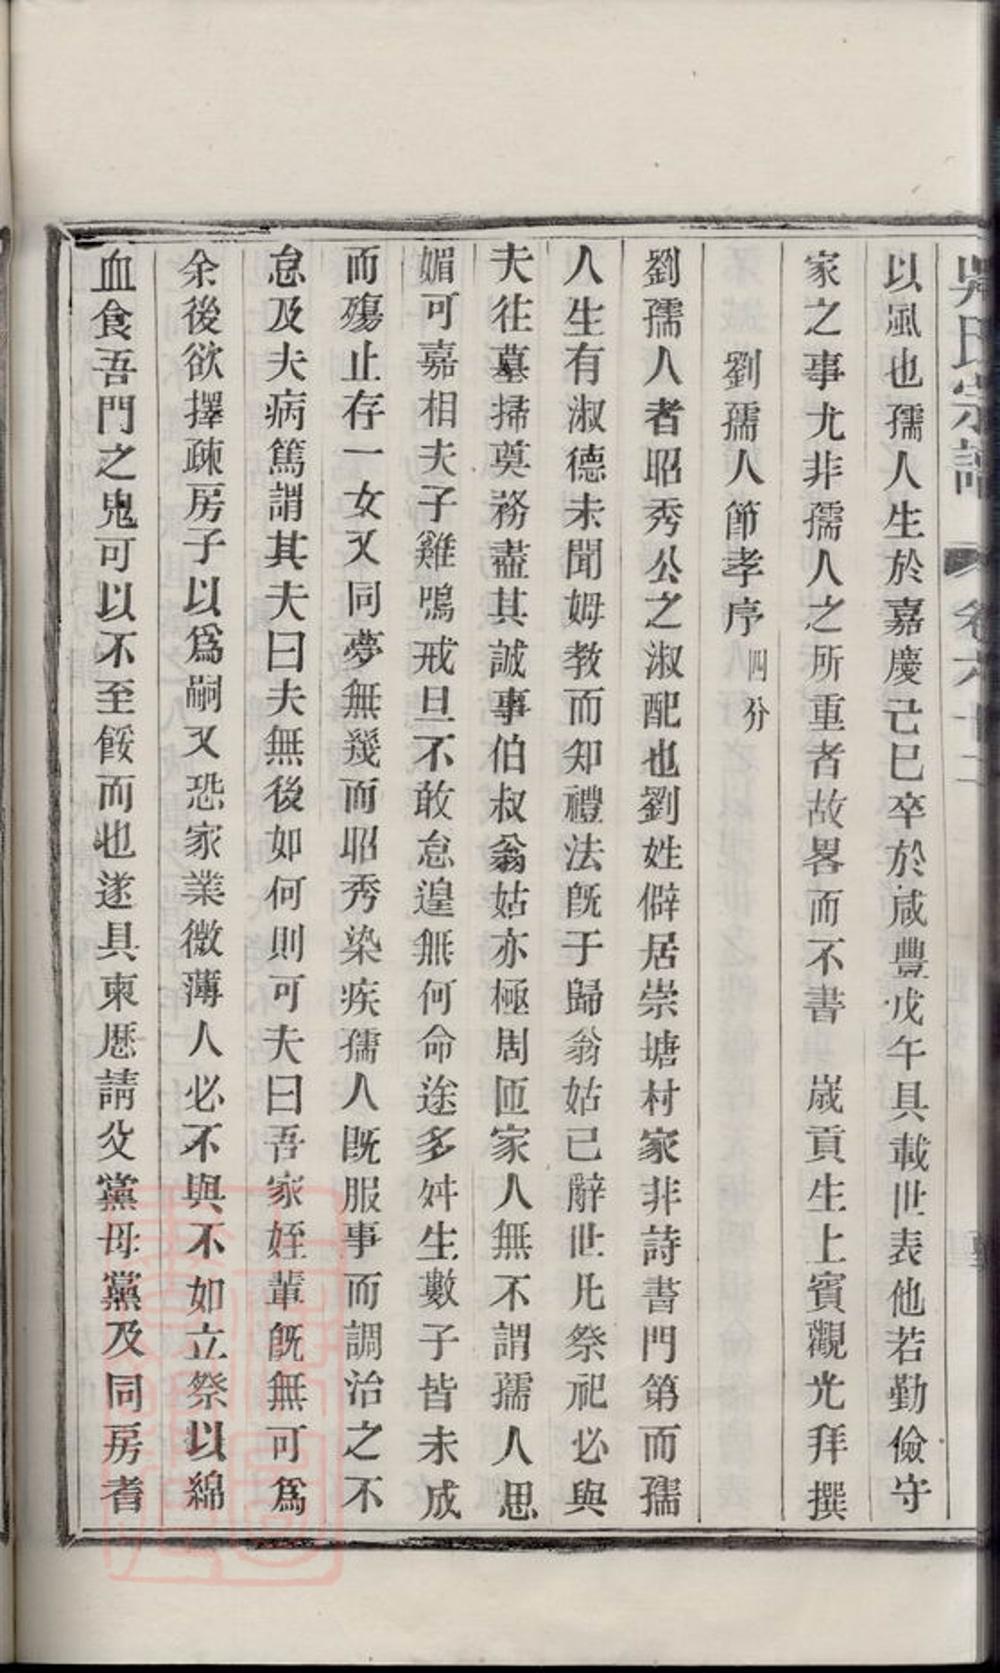 吳氏宗譜 卷六十二
以風也孺人生於嘉慶己巳卒於咸豐戊午具載世表他若勤儉守
家之事尤非孺人之所重者故畧而不書 歲貢生上賓觀光拜撰
劉孺人節孝序 四分
劉孺人者昭秀公之淑配也劉姓僻居崇塘村家非詩書門第而孺
人生有淑德未聞姆教而知禮法旣于歸翁姑已辭世凡祭祀必與
夫往墓掃奠務盡其誠事伯叔翁姑亦極周匝家人無不謂孺人思
媚可嘉相夫子雞鳴戒旦不敢怠遑無何命途多舛生數子皆未成
而殤止存一女又同夢無幾而昭秀染疾孺人旣服事而調治之不
怠及夫病篤謂其夫曰夫無後如何則可夫曰吾家姪輩旣無可爲
余後欲擇疎房子以爲嗣又恐家業微薄人必不與不如立祭以綿
血食吾門之鬼可以不至餒而也遂具柬歷請父黨母黨及同房耆